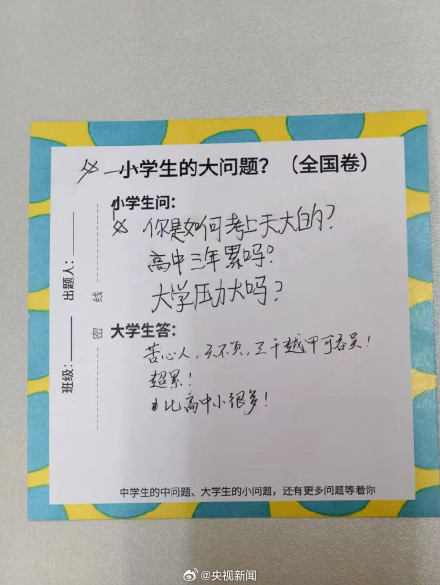 一小学生的大问题？（全国卷）
小学生问：
你是如何考上天大的？
高中三年累吗？
大学压力大吗？
大学生答：
苦心人，天不负，三千越甲可吞吴！
超累！
比高中小很多！
出题人：
班级：
密
线
中学生的中问题、大学生的小问题，还有更多问题等着你
@央视新闻